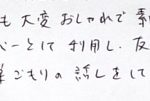 も大変おしゃれで素
べーとして利用し、友
ごもりの話しをして